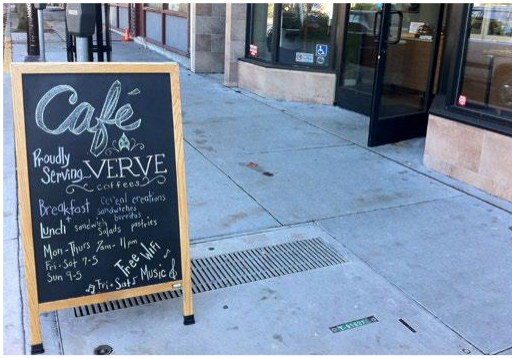 Café
Proudly
Serving VERVE
coffees
Breakfast cereal creations
sandwiches
burritos
Lunch sandwich
salads pastries
Mon-Thurs 7am-11pm
Fri-Sat 7-5
Sun 9-5
Free WiFi
Fri-Sats Music